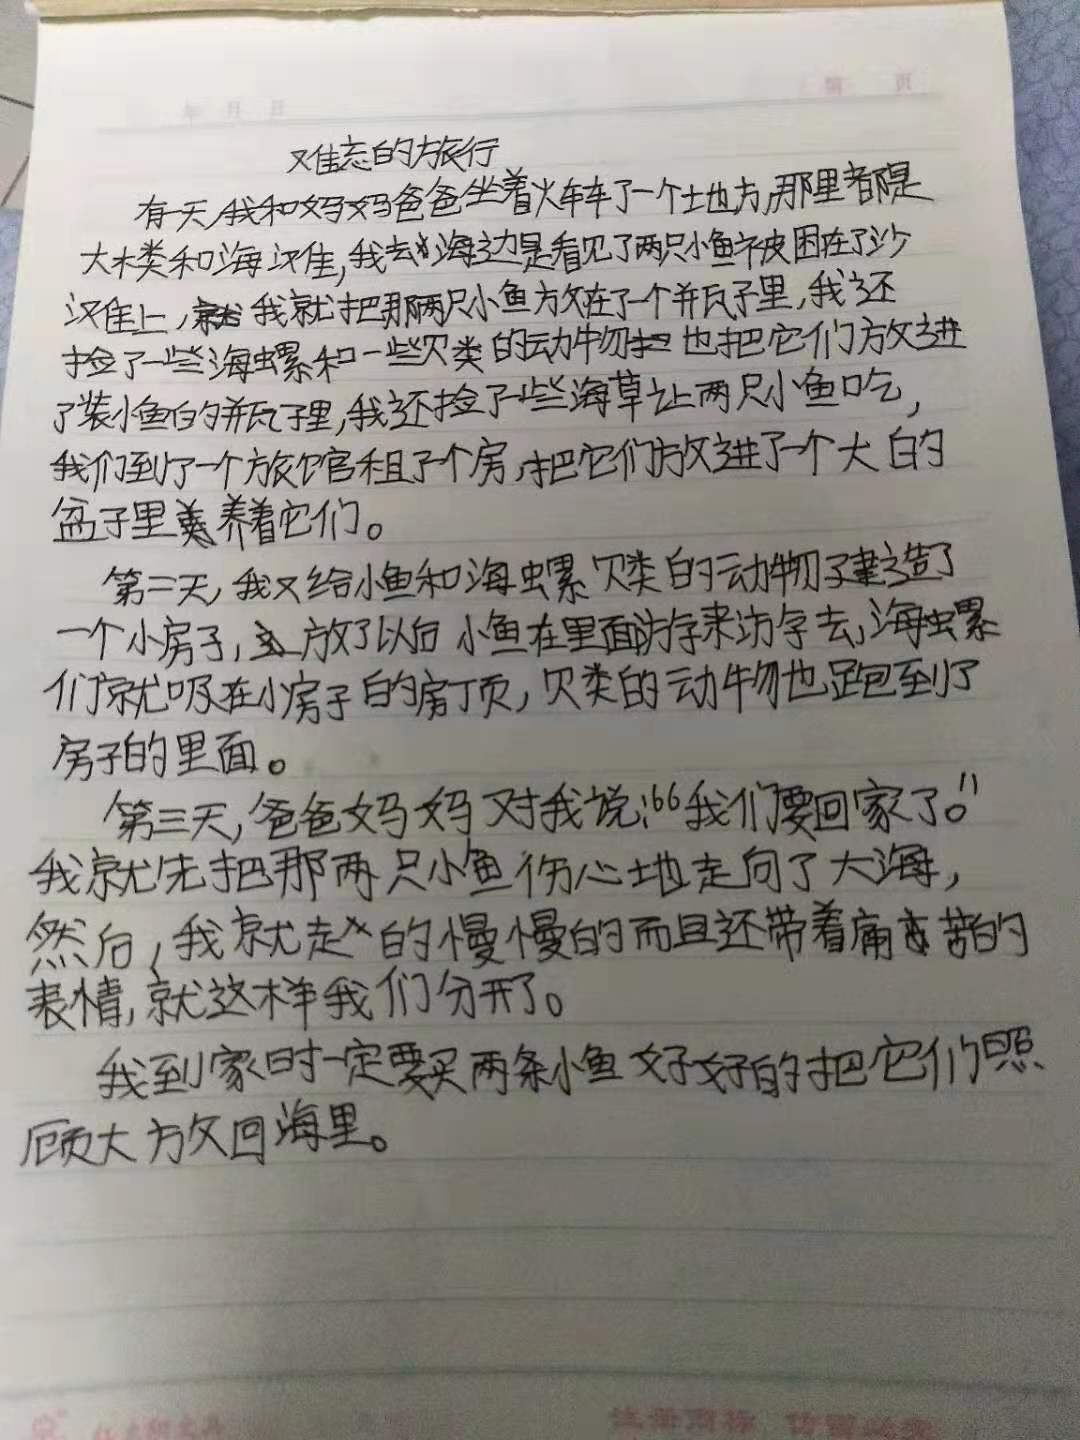 难忘的旅行
有一天,我和妈妈爸爸坐着火车车了一个土地方,那里都是
大木类和海滩,我去海边是看见了两只小鱼被困在了沙
滩上,我就把那两只小鱼放在了一个瓶子里,我还
捡了一些海螺和一些贝类的动物也把它们放进
了装小鱼的瓶子里,我还捡了一些海草让两只小鱼吃,
我们到了一个旅馆租了个房,把它们放进了一个大白的
盆子里养着它们。
第二天,我又给小鱼和海螺贝类的动物子建造了
一个小房子,放了以后小鱼在里面游来游去,海螺
们就吸在小房子的房顶,贝类的动物也跑到了
房子的里面。
第三天,爸爸妈妈对我说:“我们要回家了。”
我就先把那两只小鱼伤心地走向了大海,
然后,我就走的慢慢的而且还带着痛苦的
表情,就这样我们分开了。
我到家时一定要买两条小鱼好好的把它们照
顾大放回海里。
年 月 日
第 页